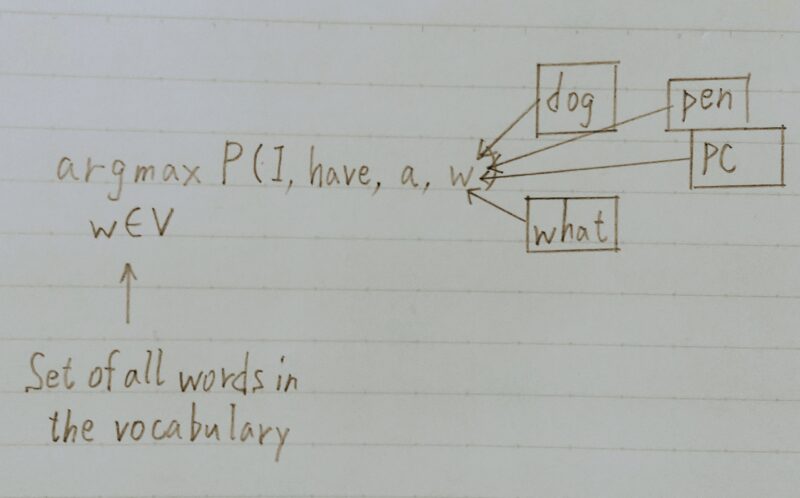 dog
pen
argmax P(I, have, a, w)
PC
w∈V
what
Set of all words in
the vocabulary